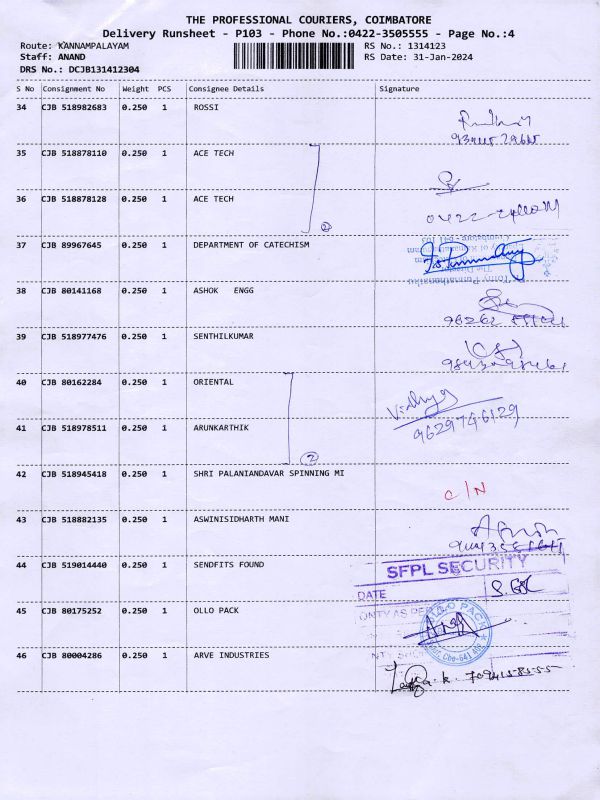 THE PROFESSIONAL COURIERS, COIMBATORE
Delivery Runsheet - P103 - Phone No.:0422-3505555 - Page No.:4
Route: KANNAMPALAYAM RS No.: 1314123
Staff: ANAND RS Date: 31-Jan-2024
DRS No.: DCJB131412304
S No Consignment No Weight PCS Consignee Details Signature
34 CJB 518982683 0.250 1 ROSSI
35 CJB 518878110 0.250 1 ACE TECH
36 CJB 518878128 0.250 1 ACE TECH
2
37 CJB 89967645 0.250 1 DEPARTMENT OF CATECHISM
38 CJB 80141168 0.250 1 ASHOK ENGG
39 CJB 518977476 0.250 1 SENTHILKUMAR
40 CJB 80162284 0.250 1 ORIENTAL
Vidhya
41 CJB 518978511 0.250 1 ARUNKARTHIK
9629746129
2
42 CJB 518945418 0.250 1 SHRI PALANIANDAVAR SPINNING MI
C/N
43 CJB 518882135 0.250 1 ASWINISIDHARTH MANI
44 CJB 519014440 0.250 1 SENDFITS FOUND
SFPL SECURITY
DATE
45 CJB 80175252 0.250 1 OLLO PACK
46 CJB 80004286 0.250 1 ARVE INDUSTRIES